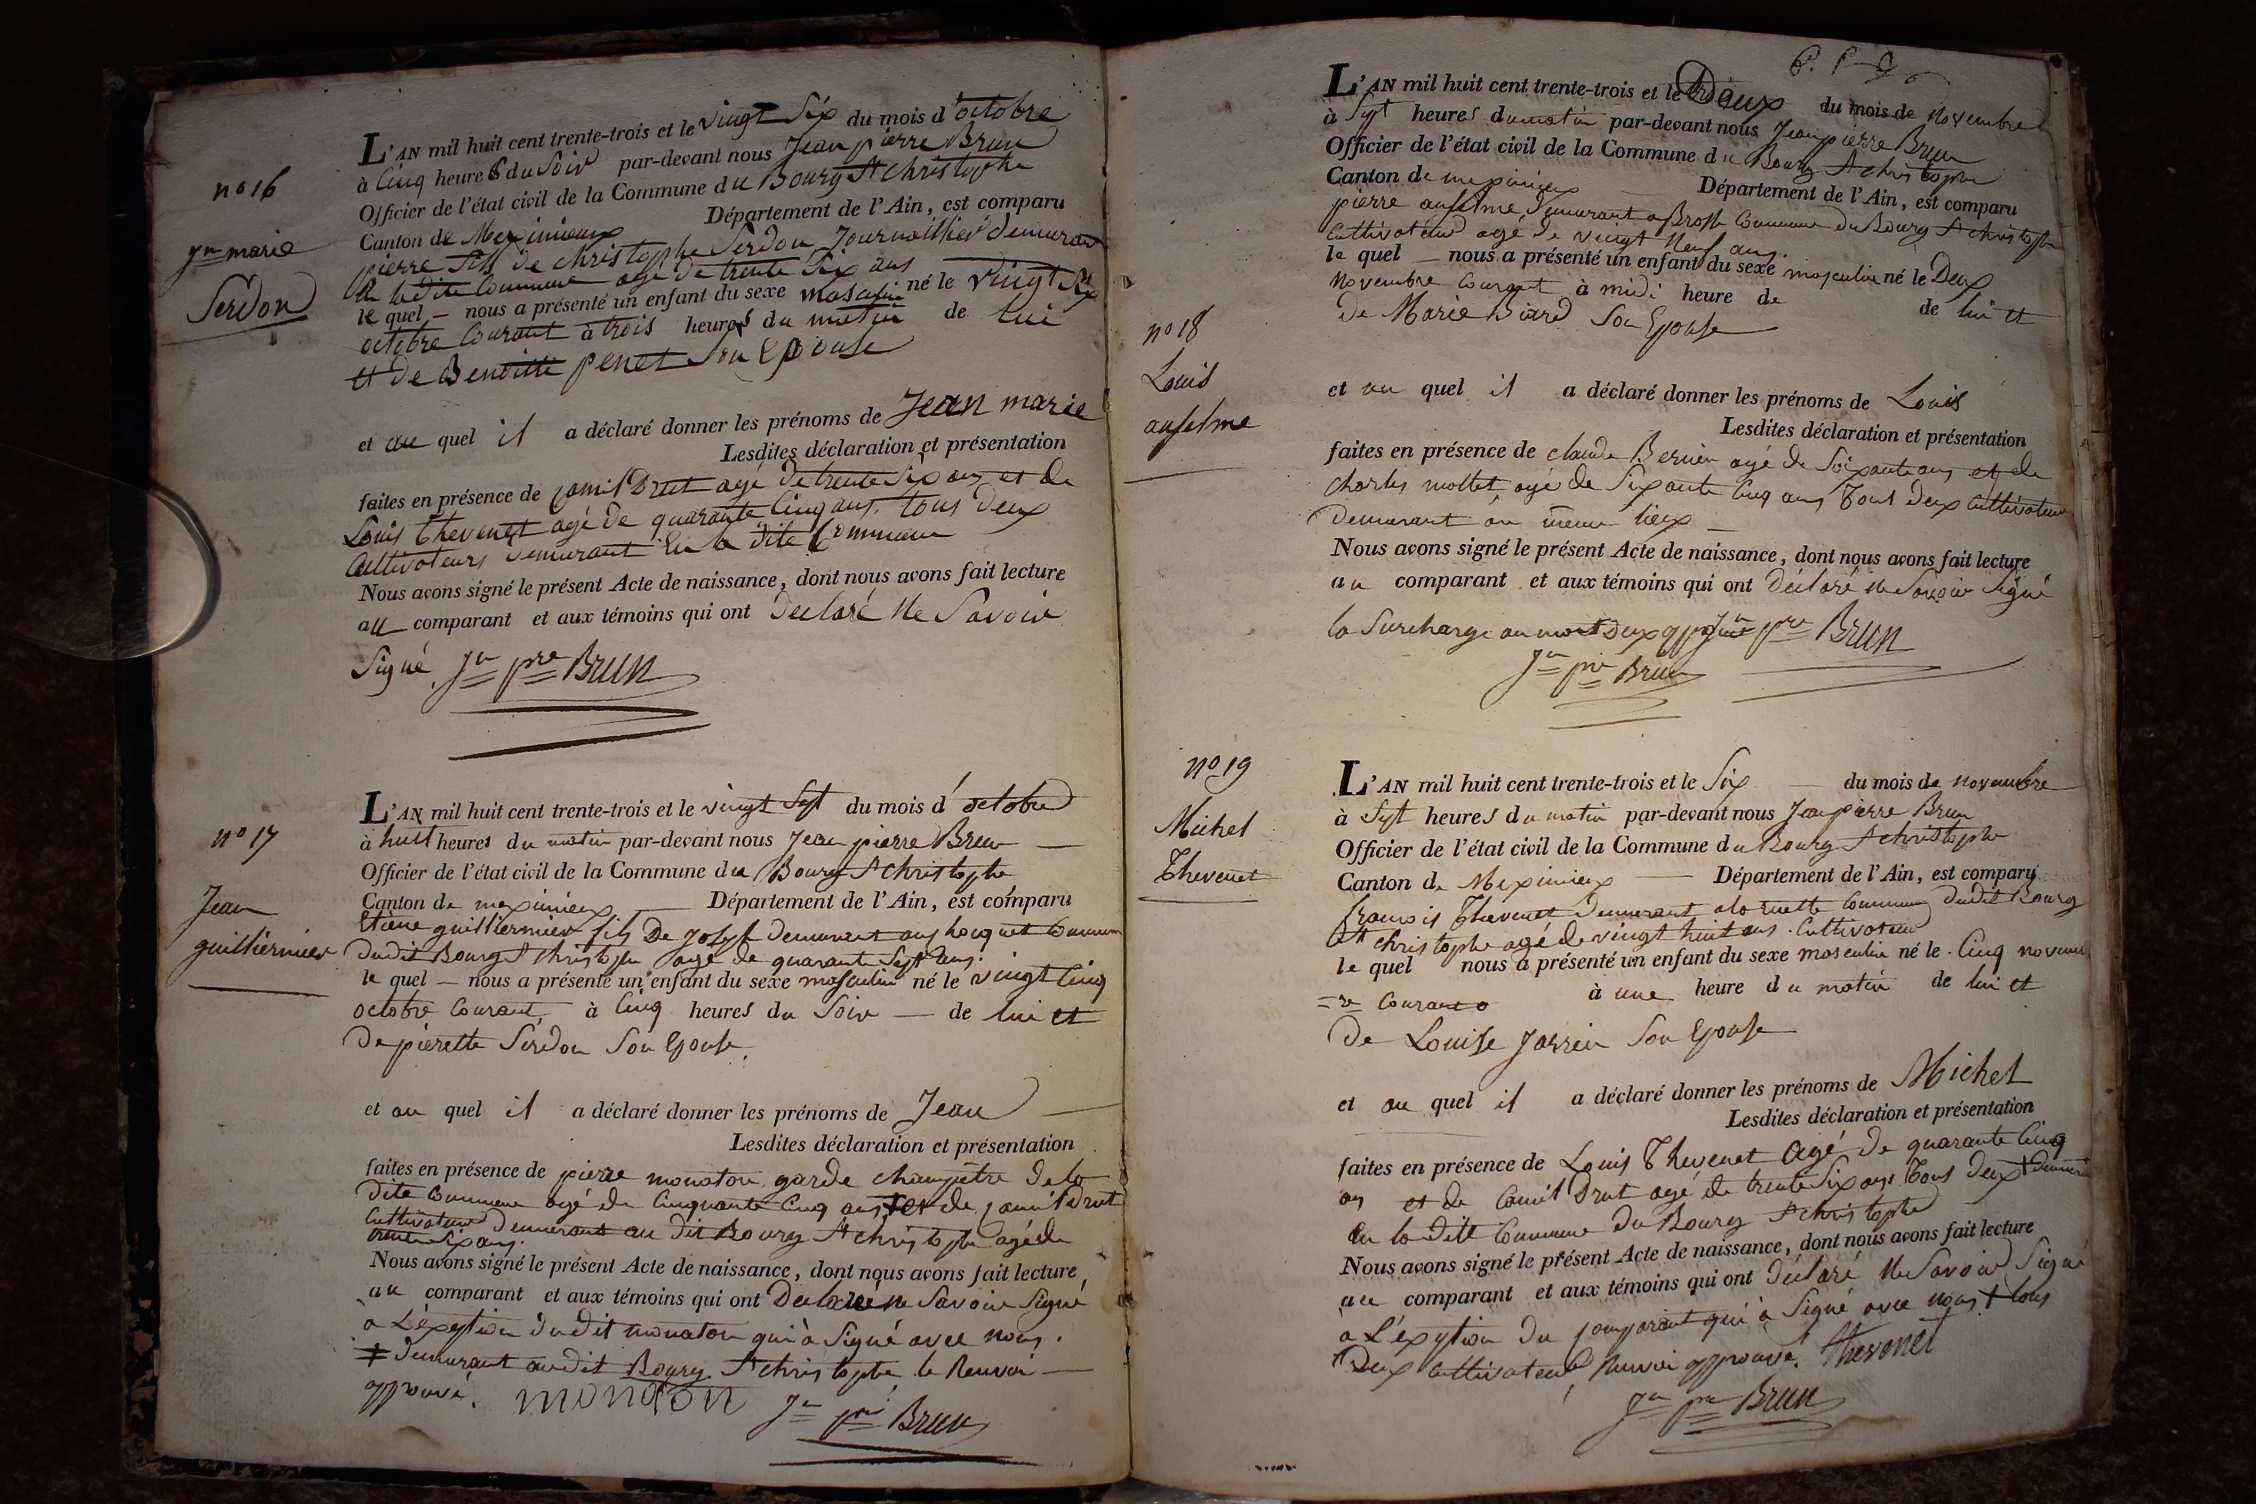 n° 16
Jn marie
Serdon
L'AN mil huit cent trente-trois et le vingt Six du mois d'octobre
à Cinq heures du Soir par-devant nous Jean pierre Brun
Officier de l'état civil de la Commune du Bourg St christophe
Canton de Meximieux Département de l'Ain, est comparu
pierre fils de christophe Serdon Journaillier demurant
en ladite Commune agé de trente Six ans
le quel — nous a présenté un enfant du sexe masculin né le vingt Six
octobre Courant à trois heures du matin de lui
et de Benoitte penet Son Epouse
et au quel il a déclaré donner les prénoms de Jean marie
Lesdites déclaration et présentation
faites en présence de Drut agé de trente Six ans et de
Louis thevenet agé de quarante Cinq ans, tous deux
Cultivateurs demurant En la dite Commune
Nous avons signé le présent Acte de naissance, dont nous avons fait lecture
au comparant et aux témoins qui ont déclaré Ne Savoir
Signé Jn pre BRUN
n° 17
Jean
guilliermier
L'AN mil huit cent trente-trois et le vingt Sept du mois d'octobre
à huit heures du matin par-devant nous Jean pierre Brun —
Officier de l'état civil de la Commune du Bourg St christophe
Canton de meximieux — Département de l'Ain, est comparu
Etiene guilliermier fils De Joseph demurant Commune
dudit Bourg St christophe agé de quarant Sept ans.
le quel — nous a présenté un enfant du sexe masculin né le vingt Cinq
octobre Courant, à Cinq heures du Soir — de lui et
De pierette Serdon Son Epouse.
et au quel il a déclaré donner les prénoms de Jean —
Lesdites déclaration et présentation
faites en présence de pierre monaton garde champêtre de la
dite Commune agé de Cinquante Cinq ans ‡ et de Drut
Cultivateur demurant au dit Bourg St christophe agé de
trente Six ans.
Nous avons signé le présent Acte de naissance, dont nous avons fait lecture
au comparant et aux témoins qui ont Declaré ne Savoir Signé
à L'éxeption dudit monaton qui à Signé avec nous.
‡ demurant audit Bourg St christophe le Renvoi —
approuvé. monaton Jn pre BRUN
n° 18
Louis
anselme
L'AN mil huit cent trente-trois et le Deux du mois de novembre
à Sept heures du matin par-devant nous Jean pierre Brun
Officier de l'état civil de la Commune du Bourg St christophe
Canton de meximieux — Département de l'Ain, est comparu
pierre anselme, demurant a Commune du Bourg St christophe
Cultivateur agé de vingt Neuf ans.
le quel — nous a présenté un enfant du sexe masculin né le Deux
Novembre Courant à midi heure de de lui et
de Marie Son Epouse
et au quel il a déclaré donner les prénoms de Louis
Lesdites déclaration et présentation
faites en présence de claude Bernier agé de Soixante ans et de
charles mollet, agé de Soixante Cinq ans tous deux Cultivateurs
demurant au même lieux —
Nous avons signé le présent Acte de naissance, dont nous avons fait lecture
au comparant et aux témoins qui ont Déclaré ne Savoir Signé
la Surcharge au mot Deux Jn pre BRUN
Jn pre Brun
n° 19
Michel
Thevenet
L'AN mil huit cent trente-trois et le Six — du mois de novembre
à Sept heures du matin par-devant nous Jean pierre Brun
Officier de l'état civil de la Commune du Bourg St christophe
Canton de Meximieux — Département de l'Ain, est comparu
françois Thevenet demurant Commune dudit Bourg
St christophe agé de vingt huit ans. Cultivateur
le quel nous a présenté un enfant du sexe masculin né le Cinq novemb
=re Courant à une heure du matin de lui et
de Louise Jarrin Son Epouse
et au quel il a déclaré donner les prénoms de Michel
Lesdites déclaration et présentation
faites en présence de Louis Thevenet Agé de quarante Cinq
ans et de Drut agé de trente Six ans tous deux ‡ demurant
En la dite Commune du Bourg St christophe
Nous avons signé le présent Acte de naissance, dont nous avons fait lecture
au comparant et aux témoins qui ont déclaré Ne Savoir Signé
à L'éxeption du comparant qui à Signé avec nous ‡ tous
deux Cultivateurs, Renvoi approuvé. thevenet
Jn pre BRUN